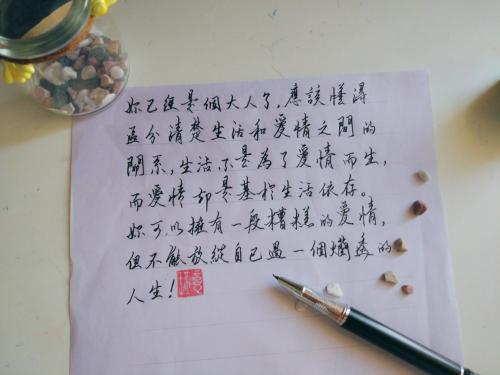 妳已經是個大人了,應該懂得
區分清楚生活和愛情之間的
關系,生活不是為了愛情而生,
而愛情卻是基於生活依存。
妳可以擁有一段糟糕的愛情,
但不能放縱自己過一個爛透的
人生!